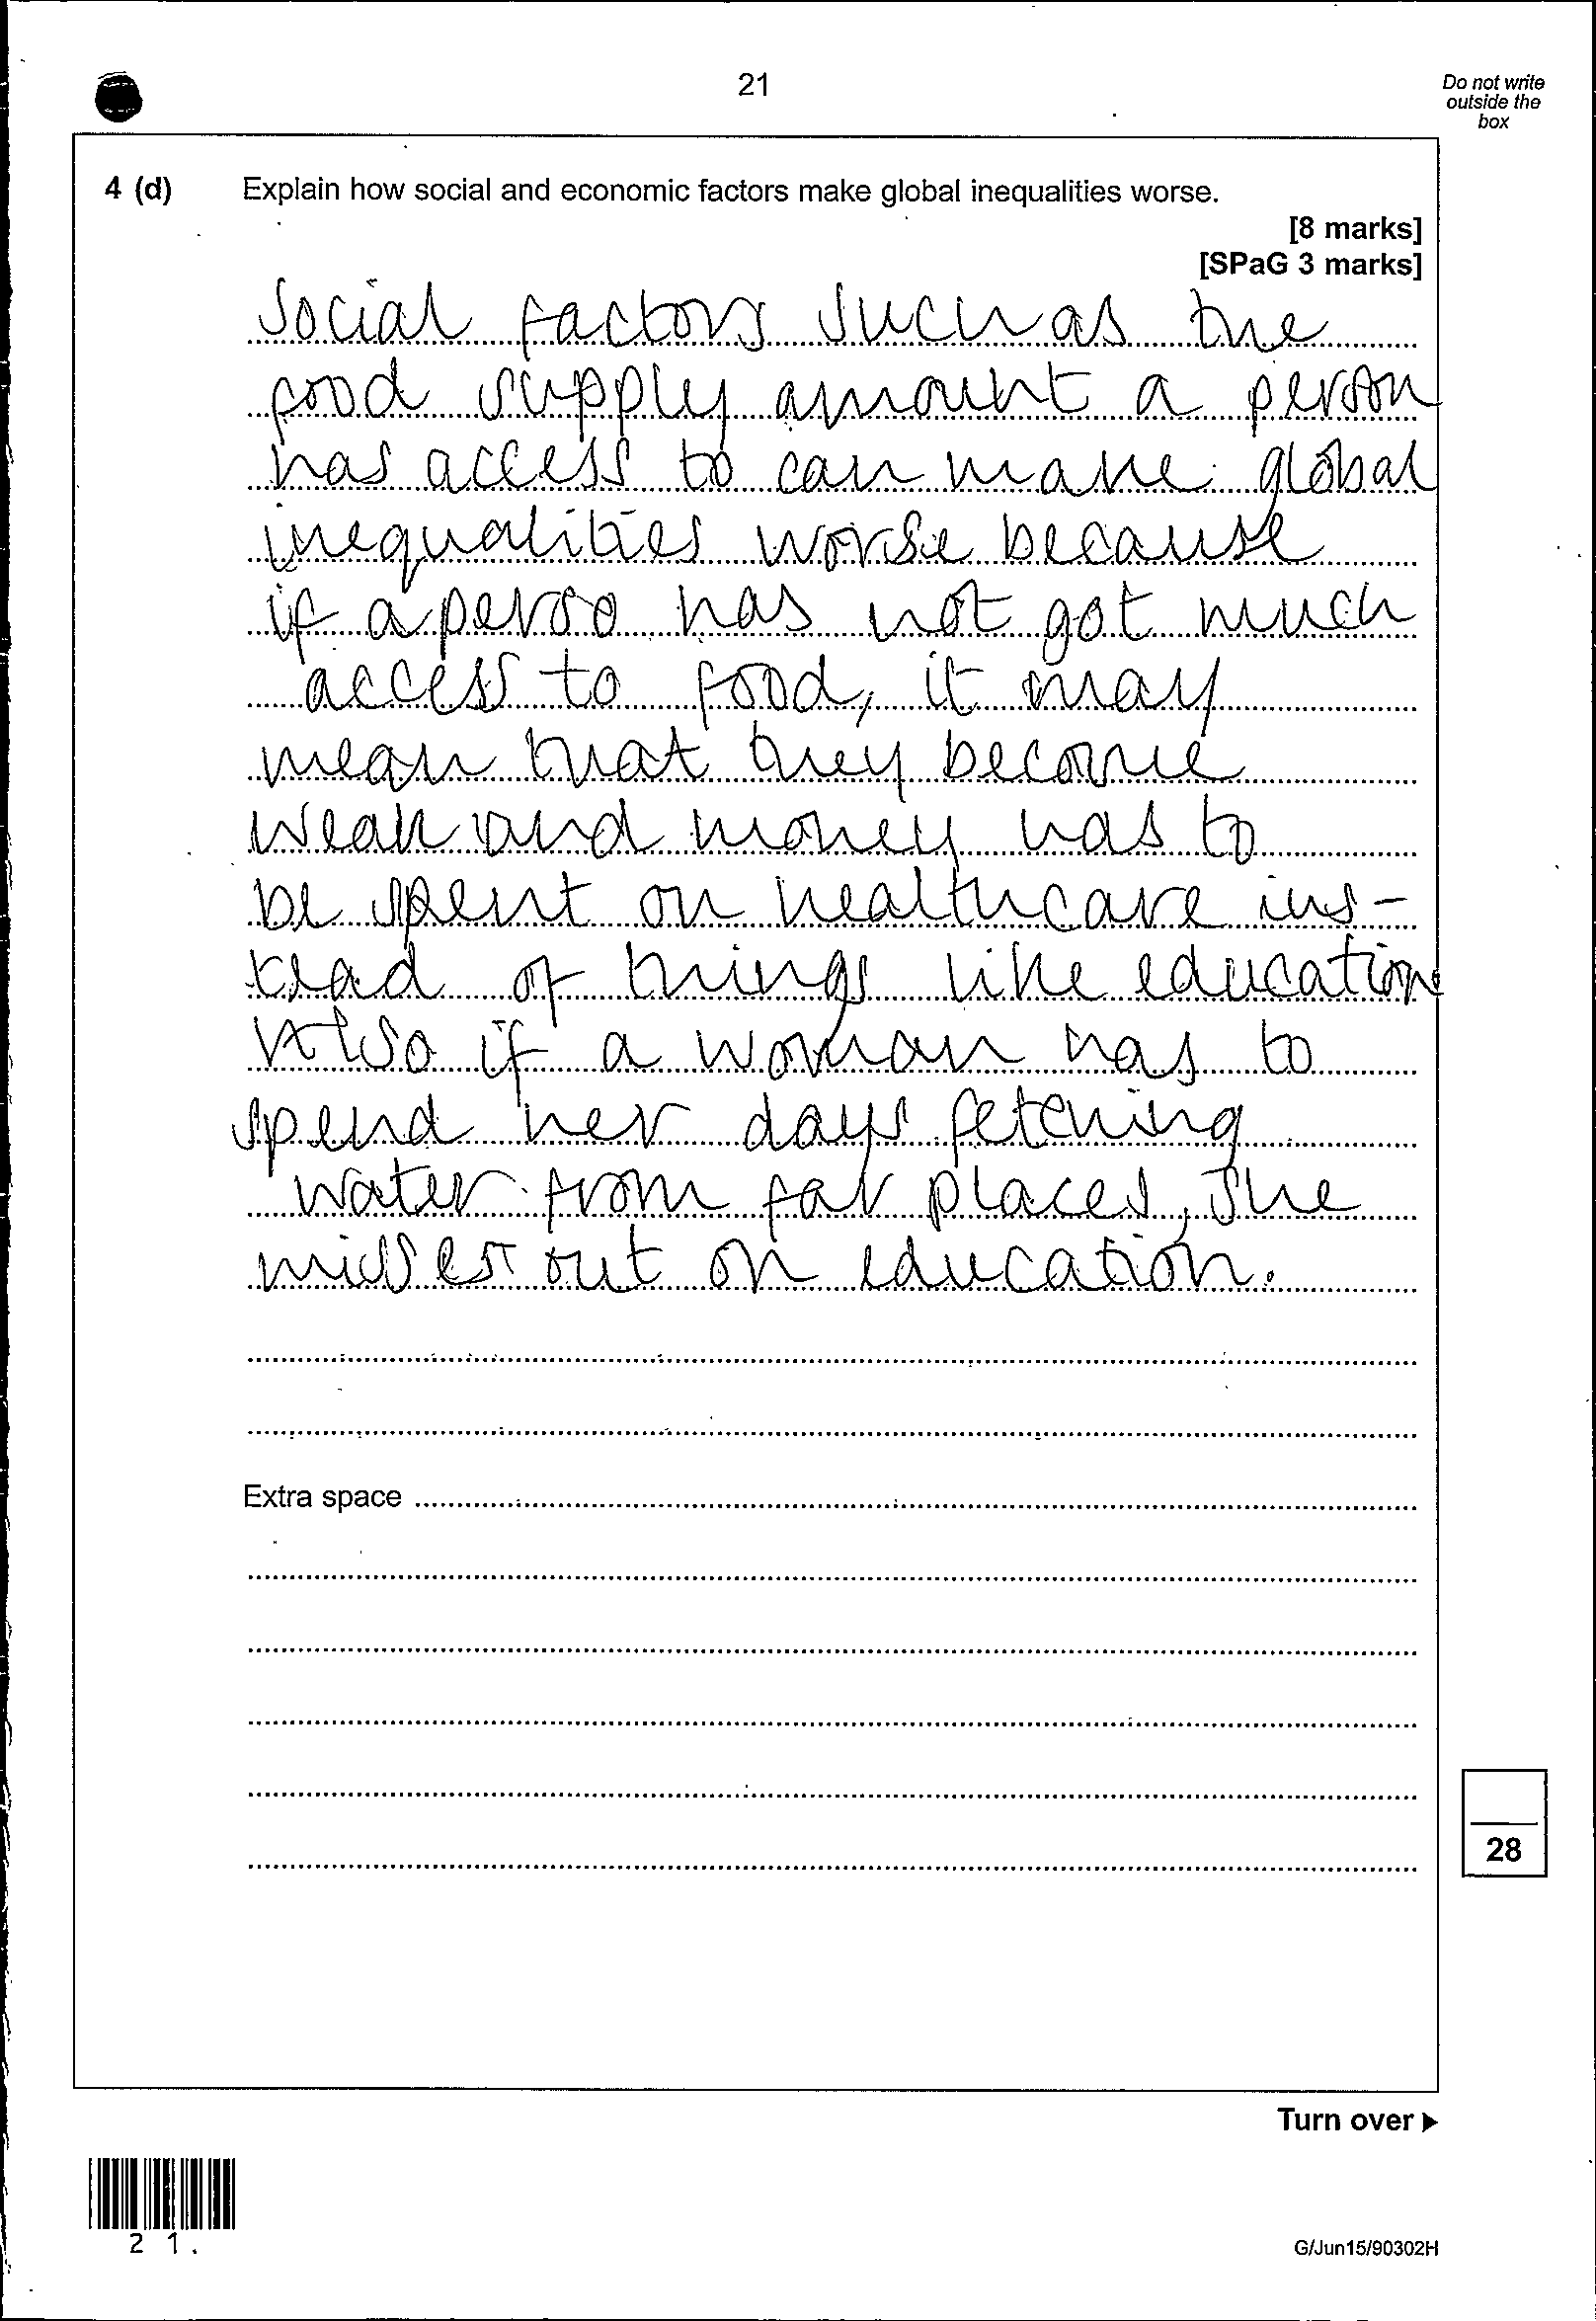 21
Do not write
outside the
box
4 (d) Explain how social and economic factors make global inequalities worse.
[8 marks]
[SPaG 3 marks]
Social factors such as the
food supply amount a person
has access to can make global
inequalities worse because
if a perso has not got much
access to food, it may
mean that they become
weak and money has to
be spent on healthcare ins-
tead of things like education
Also if a woman has to
spend her days fetching
water from far places, she
misses out on education.
Extra space
28
Turn over ▶
2 1 .
G/Jun15/90302H